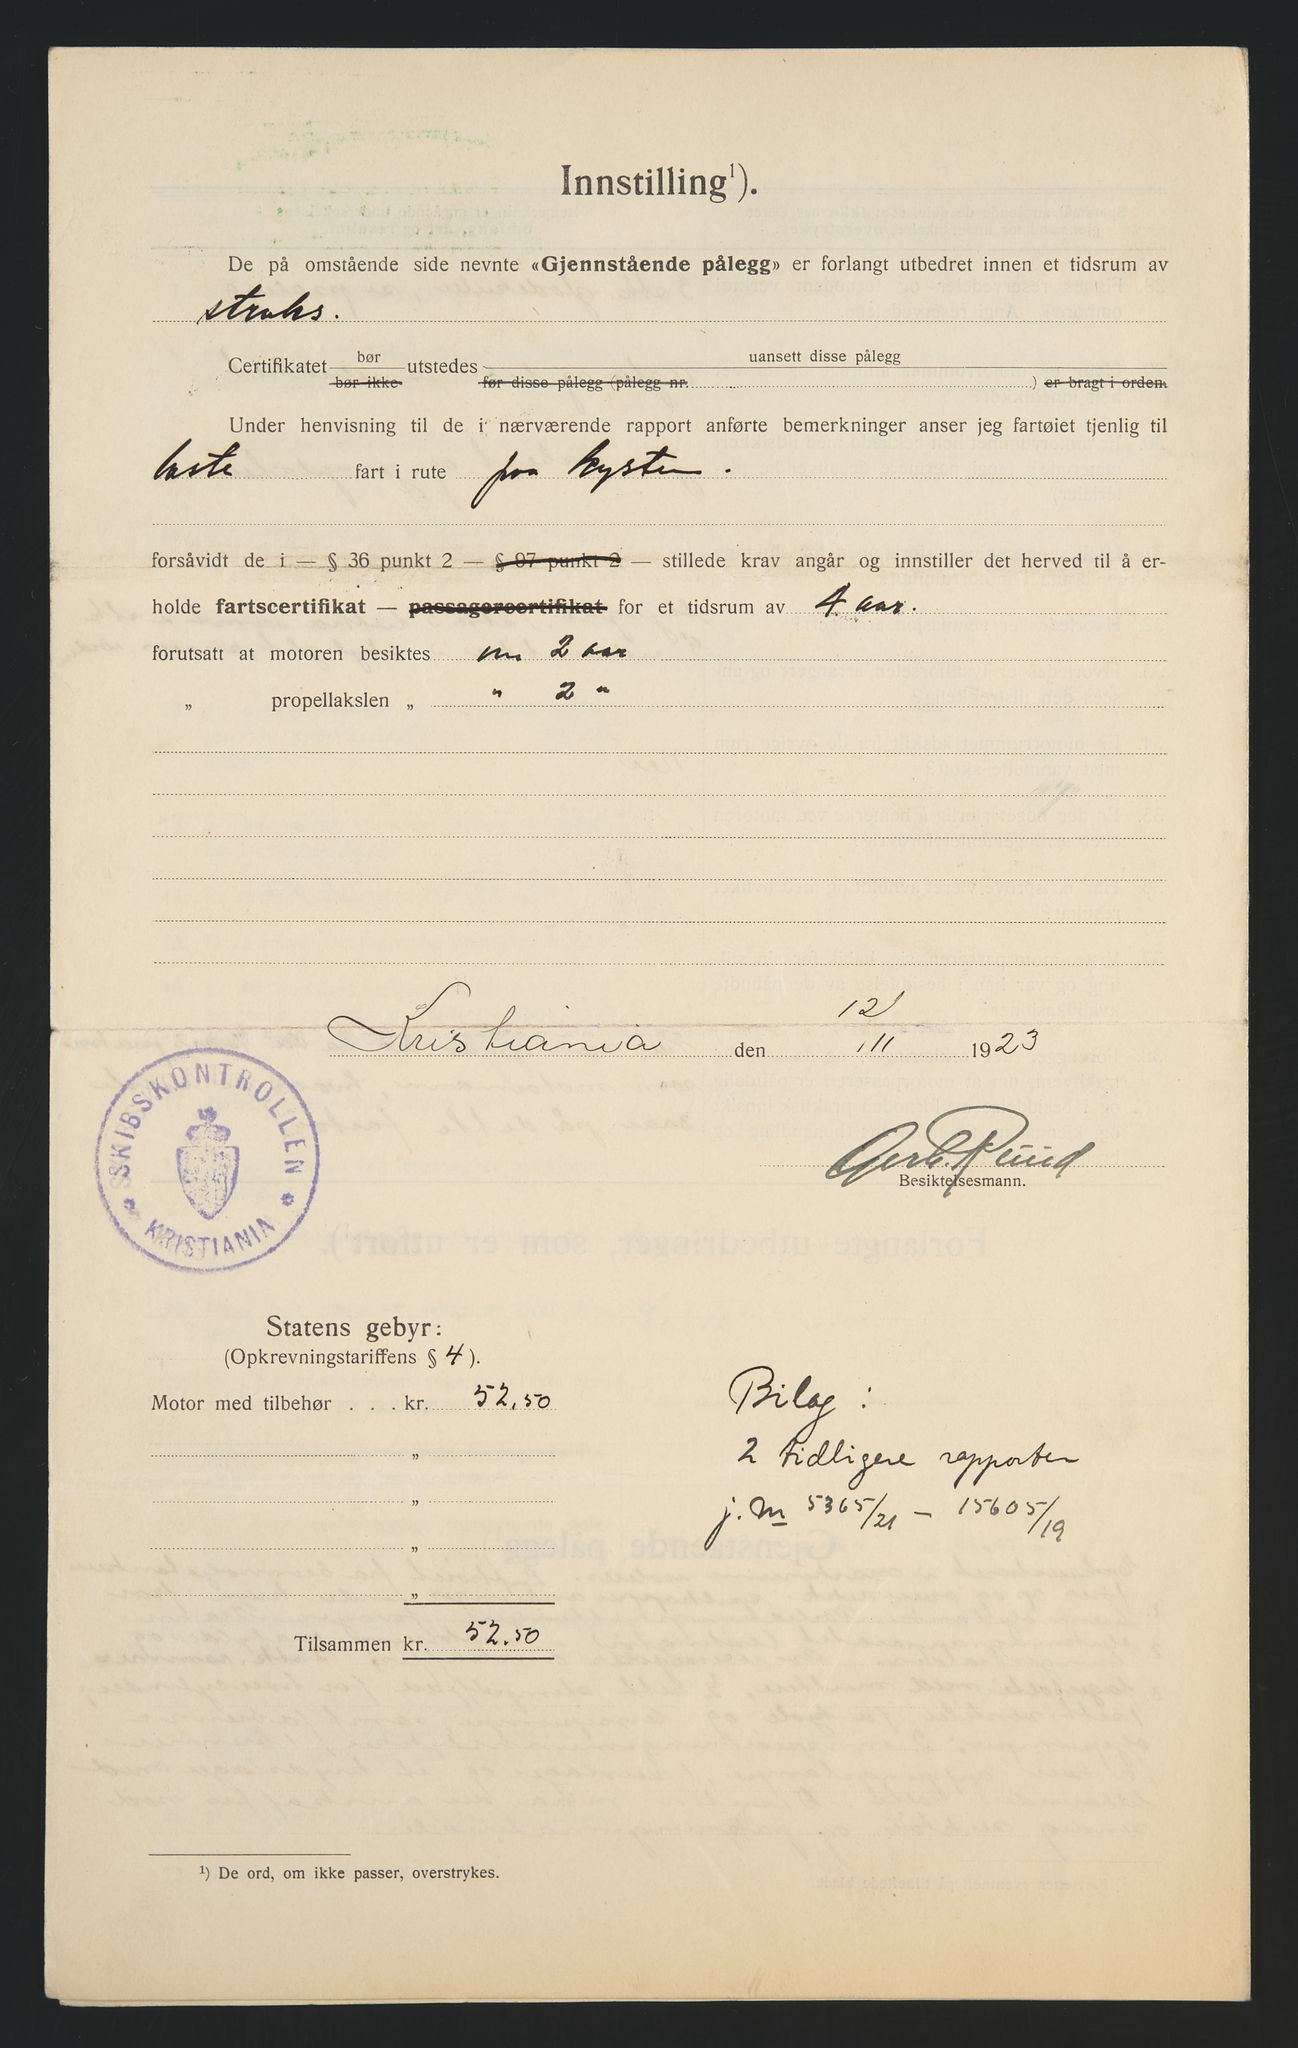 Innstilling¹).
De på omstående side nevnte «Gjennstående pålegg» er forlangt utbedret innen et tidsrum av
straks.
Certifikatet bør utstedes uansett disse pålegg
bør ikke før disse pålegg (pålegg nr. ) er bragt i orden.
Under henvisning til de i nærværende rapport anførte bemerkninger anser jeg fartøiet tjenlig til
laste fart i rute paa kysten.
forsåvidt de i — § 36 punkt 2 — § 97 punkt 2 — stillede krav angår og innstiller det herved til å er-
holde fartscertifikat — passagercertifikat for et tidsrum av 4 aar.
forutsatt at motoren besiktes om 2 aar
„ propellakslen „ " 2 "
Kristiania den 12/11 1923
Gerh. Ruud
Besiktelsesmann.
SKIBSKONTROLLEN
KRISTIANIA
Statens gebyr:
(Opkrevningstariffens § 4).
Motor med tilbehør . . . kr. 52,50
„
„
„
„
Tilsammen kr. 52.50
Bilag:
2 tidligere rapporter
j. № 5365/21 — 15605/19
¹) De ord, om ikke passer, overstrykes.